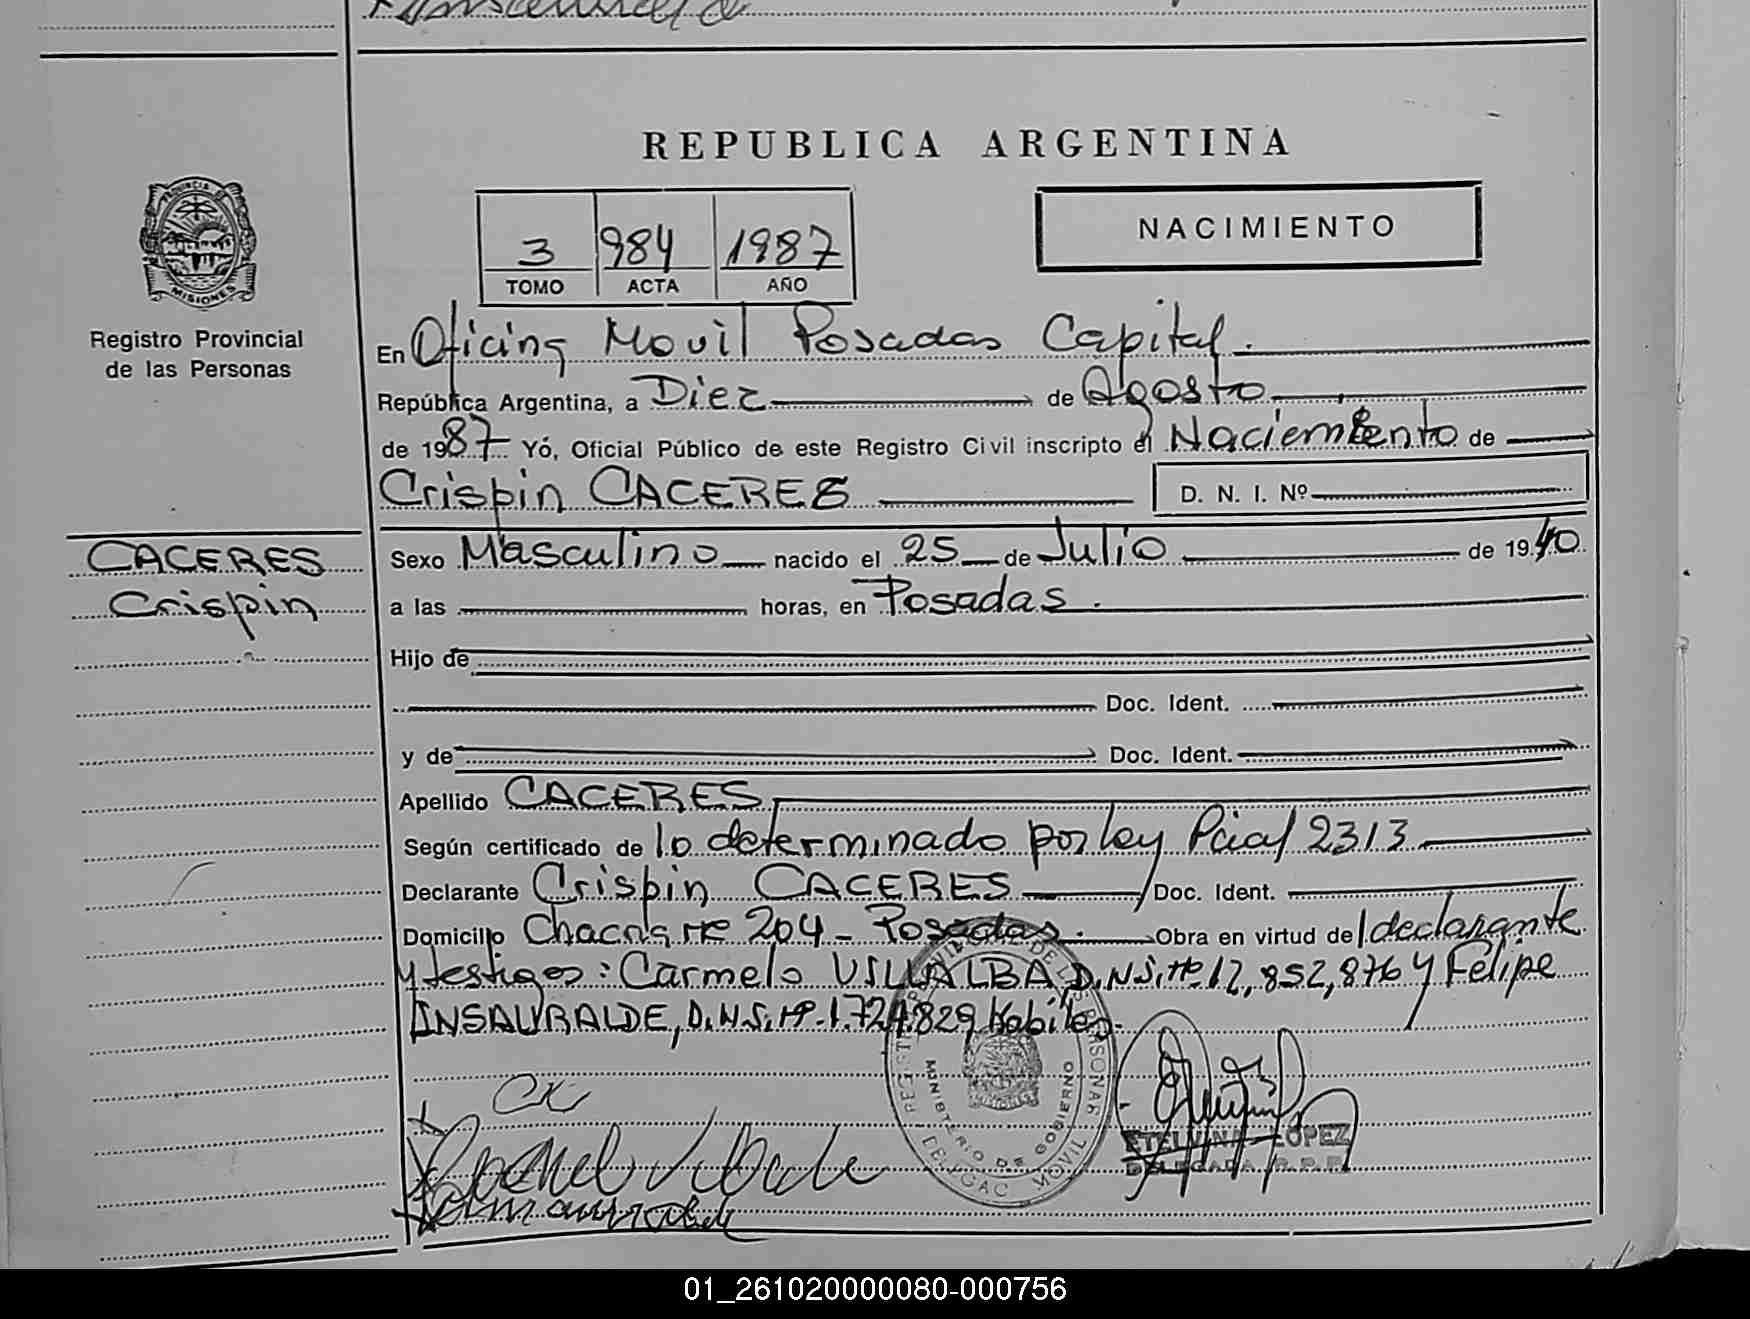 REPUBLICA ARGENTINA
PROVINCIA DE
MISIONES
Registro Provincial
de las Personas
3 984 1987
TOMO ACTA AÑO
NACIMIENTO
En Oficina Movil Posadas Capital.
República Argentina, a Diez de Agosto
de 1987 Yó, Oficial Público de este Registro Civil inscripto el Naciemiento de
Crispin CACERES D. N. I. Nº
CACERES
Crispin
Sexo Masculino nacido el 25 de Julio de 1940
a las horas, en Posadas.
Hijo de
Doc. Ident.
y de Doc. Ident.
Apellido CACERES
Según certificado de lo determinado por ley Pcial 2313
Declarante Crispin CACERES Doc. Ident.
Domicilio Chacra Nº 204 - Posadas. Obra en virtud de declarante
y testigos: Carmelo VILLALBA D.N.I. Nº 12,852,876 y Felipe
INSAURALDE, D.N.I. Nº 1.724.829 Habiles.
MINISTERIO DE GOBIERNO
ETELVINA LOPEZ
DELEGADA R.P.P.
01_261020000080-000756